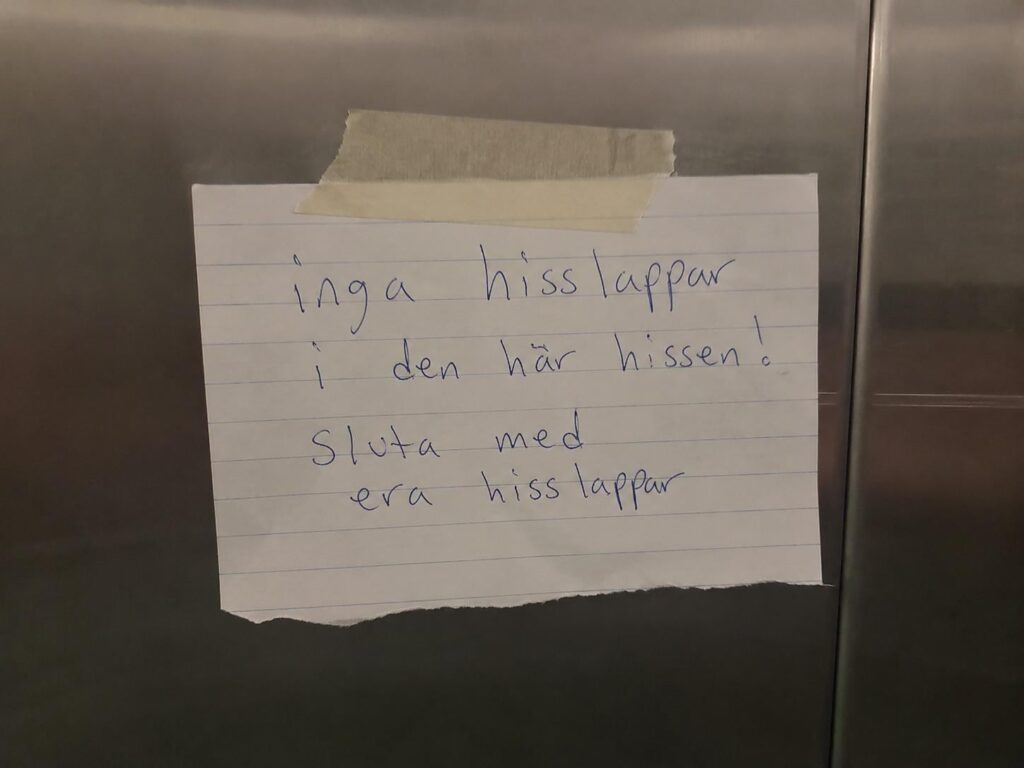 inga hisslappar
i den här hissen!
sluta med
era hisslappar